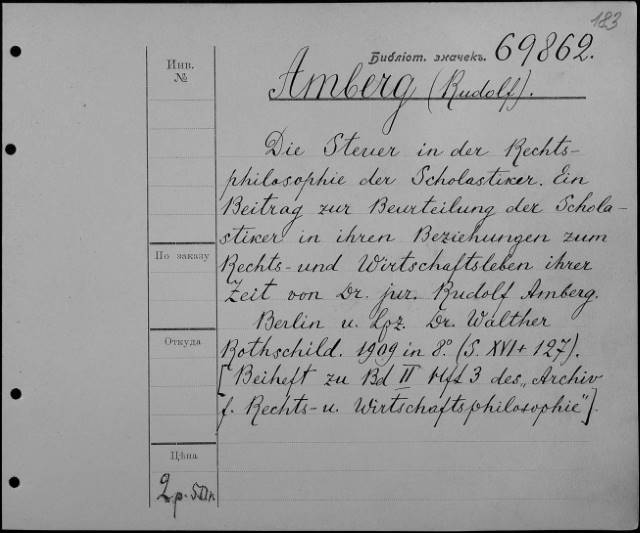 183
Библіот. значекъ. 69862.
Инв.
№
Amberg (Rudolf).
Die Steuer in der Rechts-
philosophie der Scholastiker. Ein
Beitrag zur Beurteilung der Schola-
stiker in ihren Beziehungen zum
По заказу
Rechts- und Wirtschaftsleben ihrer
Zeit von Dr. jur. Rudolf Amberg.
Berlin u. Lpz. Dr. Walther
Откуда
Rothschild. 1909 in 8° (S. XVI + 127).
[Beiheft zu Bd II Hft 3 des „Archiv
f. Rechts- u. Wirtschaftsphilosophie"].
Цѣна
2 р.